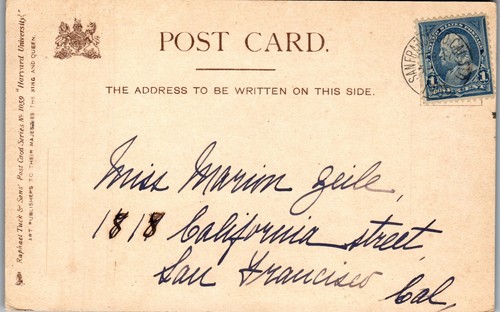 POST CARD.
THE ADDRESS TO BE WRITTEN ON THIS SIDE.
Miss Marion Zeile,
1818 California street,
San Francisco
Cal,
Raphael Tuck & Sons' Post Card Series No 1059 "Harvard University."
ART PUBLISHERS TO THEIR MAJESTIES THE KING AND QUEEN.
SAN FRAN
1 1
ONE CENT